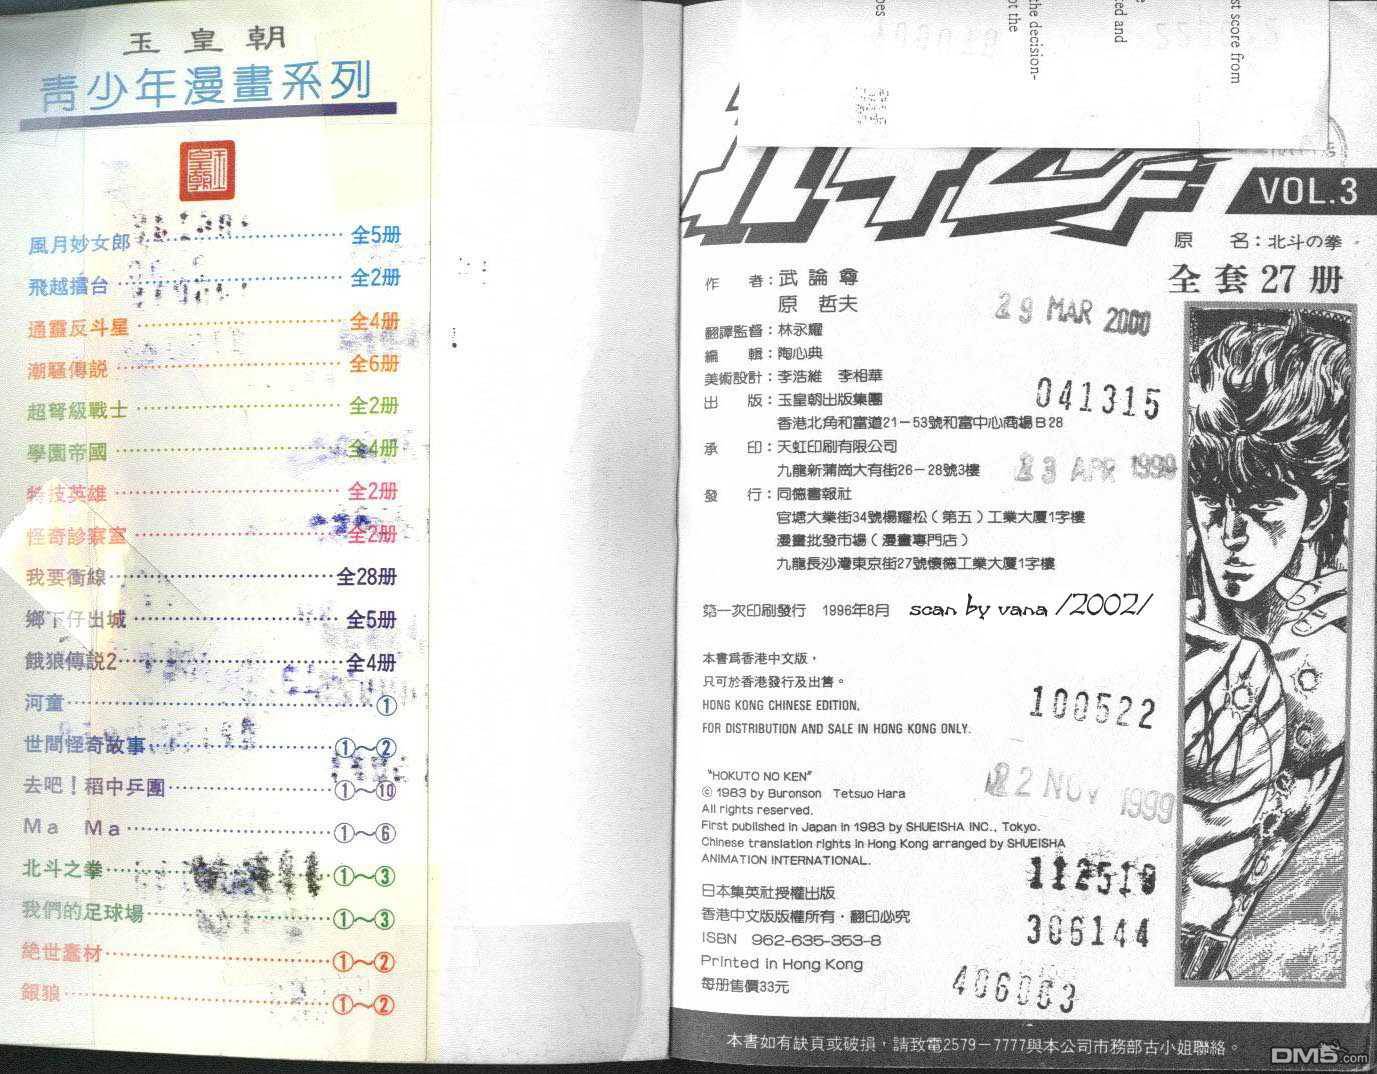 玉皇朝
青少年漫畫系列
玉皇朝
風月妙女郎 全5册
飛越擂台 全2册
通靈反斗星 全4册
潮騷傳説 全6册
超弩級戰士 全2册
學園帝國 全4册
特技英雄 全2册
怪奇診察室 全2册
我要衝線 全28册
鄉下仔出城 全5册
餓狼傳説2 全4册
河童 ①
世間怪奇故事 ①～②
去吧！稻中乒團 ①～⑩
Ma Ma ①～⑥
北斗之拳 ①～③
我們的足球場 ①～③
絕世蠢材 ①～②
銀狼 ①～②
st score from
ed and
the decision-
ot the
oes
VOL.3
原　名：北斗の拳
全套27册
作　者：武論尊
原　哲夫
翻譯監督：林永耀
編　輯：陶心典
美術設計：李浩維　李相華
出　版：玉皇朝出版集團
香港北角和富道21－53號和富中心商場B28
承　印：天虹印刷有限公司
九龍新蒲崗大有街26－28號3樓
發　行：同德書報社
官塘大業街34號楊耀松（第五）工業大厦1字樓
漫畫批發市場（漫畫專門店）
九龍長沙灣東京街27號懷德工業大厦1字樓
29 MAR 2000
041315
23 APR 1999
第一次印刷發行　1996年8月
scan by vana /2002/
本書爲香港中文版，
只可於香港發行及出售。
HONG KONG CHINESE EDITION,
FOR DISTRIBUTION AND SALE IN HONG KONG ONLY.
100522
"HOKUTO NO KEN"
© 1983 by Buronson　Tetsuo Hara
All rights reserved.
First published in Japan in 1983 by SHUEISHA INC., Tokyo.
Chinese translation rights in Hong Kong arranged by SHUEISHA
ANIMATION INTERNATIONAL.
22 NOV 1999
112519
日本集英社授權出版
香港中文版版權所有·翻印必究
ISBN　962-635-353-8
Printed in Hong Kong
每册售價33元
306144
406003
本書如有缺頁或破損，請致電2579－7777與本公司市務部古小姐聯絡。
DM5.com